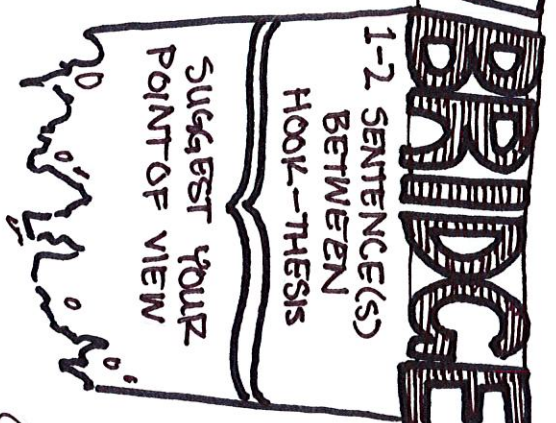 BRIDGE
1-2 SENTENCE(S)
BETWEEN
HOOK-THESIS
SUGGEST YOUR
POINT OF VIEW